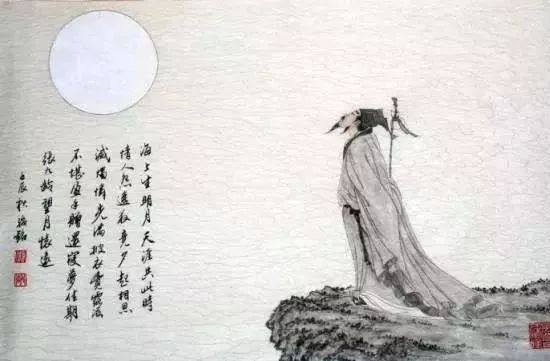 海上生明月 天涯共此時
情人怨遥夜 竟夕起相思
滅燭憐光滿 披衣覺露滋
不堪盈手贈 還寢夢佳期
張九齡望月懷遠
壬辰秋